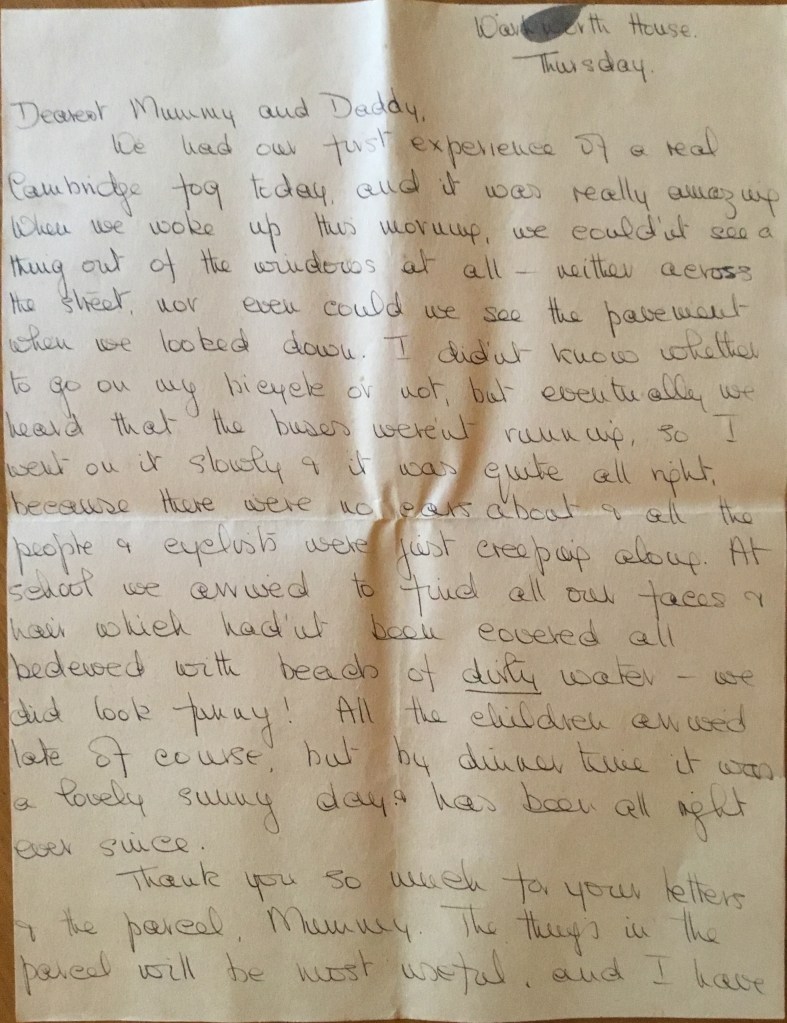 Warkworth House.
Thursday.
Dearest Mummy and Daddy,
We had our first experience of a real
Cambridge fog today, and it was really amazing
When we woke up this morning, we could'nt see a
thing out of the windows at all – neither across
the street, nor even could we see the pavement
when we looked down. I did'nt know whether
to go on my bicycle or not, but eventually we
heard that the buses were'nt running, so I
went on it slowly & it was quite all right,
because there were no cars about & all the
people & cyclists were just creeping along. At
school we arrived to find all our faces &
hair which had'nt been covered all
bedewed with beads of dirty water – we
did look funny! All the children arrived
late of course, but by dinner time it was
a lovely sunny day & has been all right
ever since.
Thank you so much for your letters
& the parcel, Mummy. The things in the
parcel will be most useful, and I have